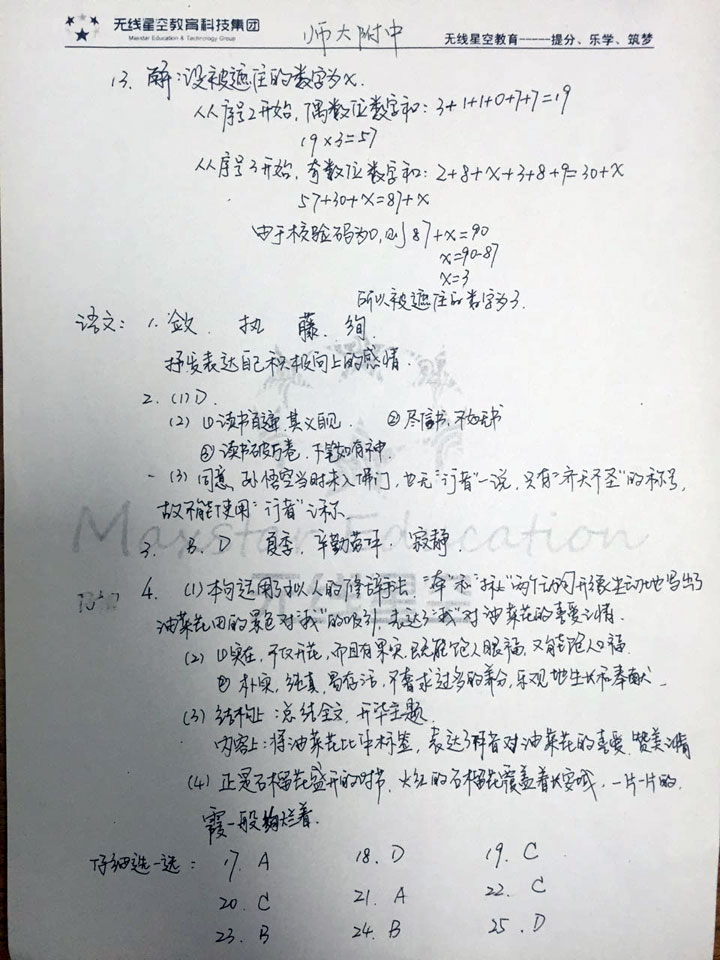 无线星空教育科技集团
Maxstar Education & Technology Group
师大附中
无线星空教育-----提分、乐学、筑梦
13. 解:设被遮住的数字为x.
从序号2开始,偶数位数字和:3+1+1+0+7+7=19
19×3=57
从序号3开始,奇数位数字和:2+8+x+3+8+9=30+x
57+30+x=87+x
由于校验码为0,则87+x=90
x=90-87
x=3
所以被遮住的数字为3.
语文: 1. 敛 执 藤 绚
抒发表达自己积极向上的感情.
2. (1) D.
(2) ①读书百遍,其义自见 ②尽信书,不如无书
③读书破万卷,下笔如有神.
(3) 同意,孙悟空当时未入佛门,也无"行者"一说,只有"齐天大圣"的称号,
故不能使用"行者"之称.
3. B. D 夏季, 辛勤劳作 寂静.
4. (1) 本句运用了拟人的修辞手法,"牵"和"扯"两个动词形象生动地写出了
油菜花田的景色对"我"的吸引,表达了"我"对油菜花的喜爱之情.
(2) ①实在,不仅开花,而且有果实,既能饱人眼福,又能饱人口福.
② 朴实,纯真,易存活,不奢求过多的养分,乐观地生长和奉献.
(3) 结构上:总结全文,升华主题.
内容上:将油菜花比作标签,表达了作者对油菜花的喜爱、赞美之情
(4) 正是石榴花盛开的时节,火红的石榴花覆盖着长安城,一片一片的,
霞一般绚烂着.
仔细选一选: 17. A 18. D 19. C
20. C 21. A 22. C
23. B 24. B 25. D
Maxstar Education
无线星空